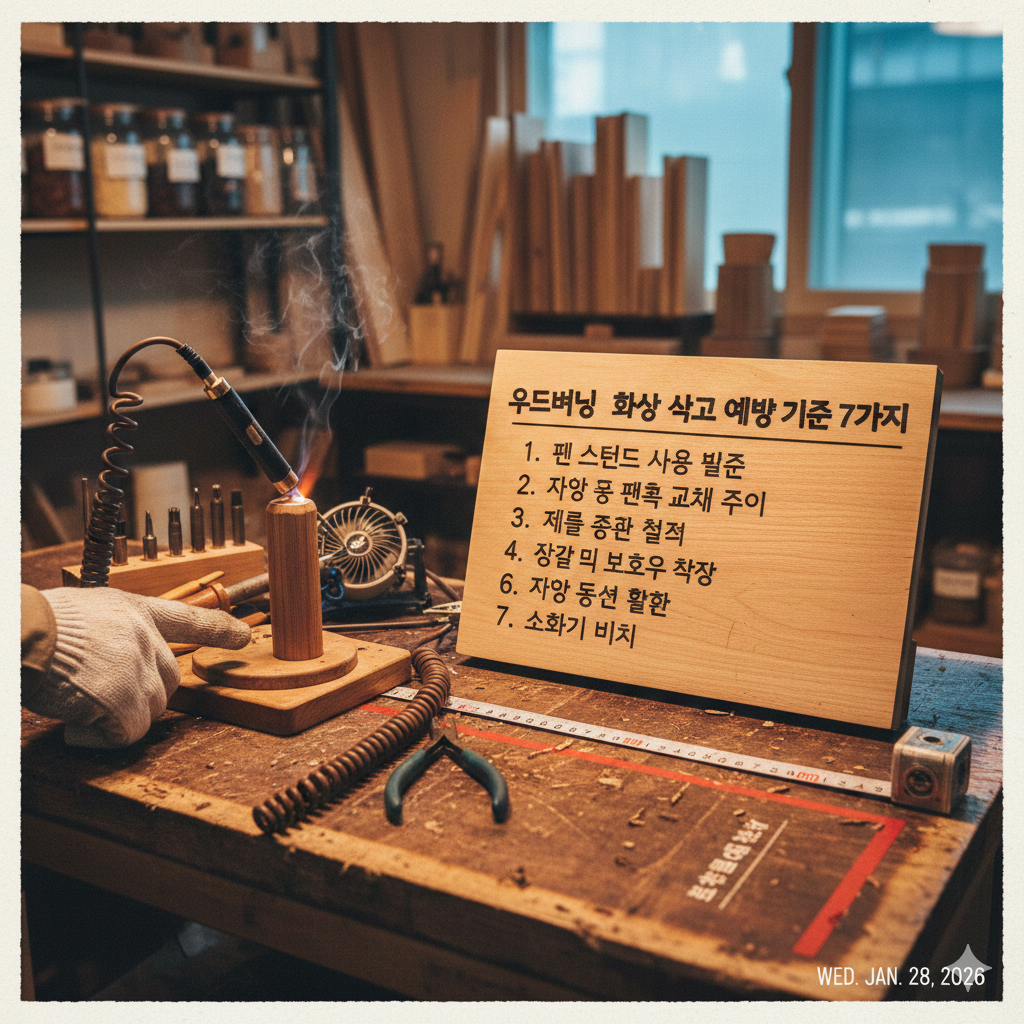 우드버닝 화상 삭고 예방 기준 7가지
1. 펜 스턴드 사용 빌준
2. 자앙 몽 팬혹 교채 주이
3. 제를 종판 철적
4. 장갈 믜 보호우 착장
6. 자앙 동션 활환
7. 소화기 비치
WED. JAN. 28, 2026